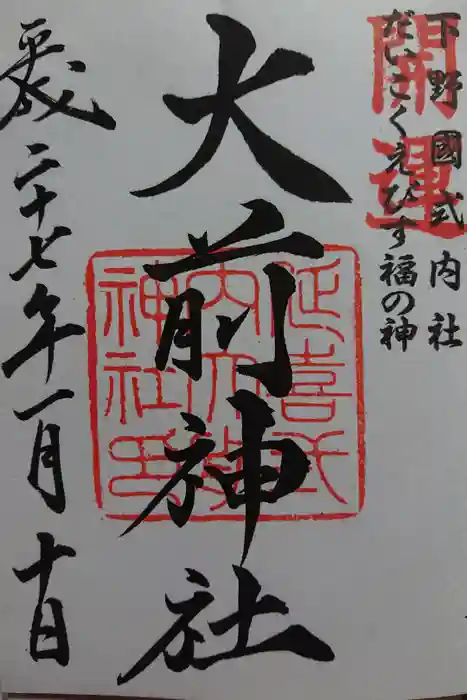 開運
下野國式内社
だいこくえびす福の神
大前神社
延喜式
内大前
神社印
平成二十七年一月十日